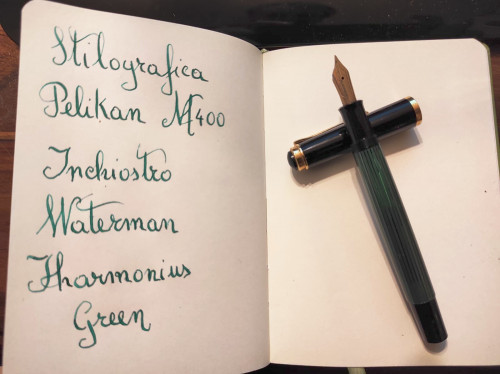 Stilografica
Pelikan M400
Inchiostro
Waterman
Harmonius
Green